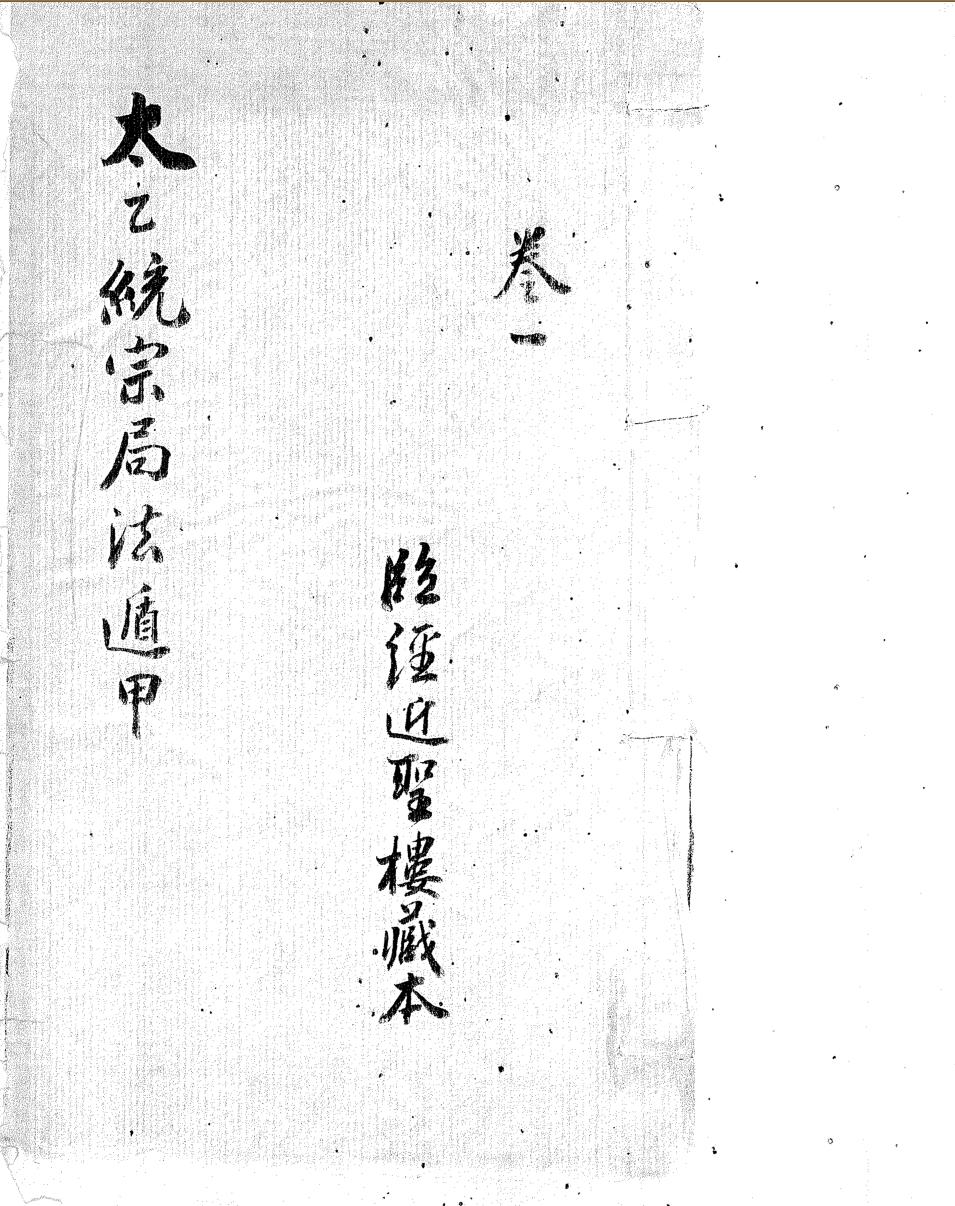 卷一
臨近聖樓藏本
太乙統宗局法遁甲